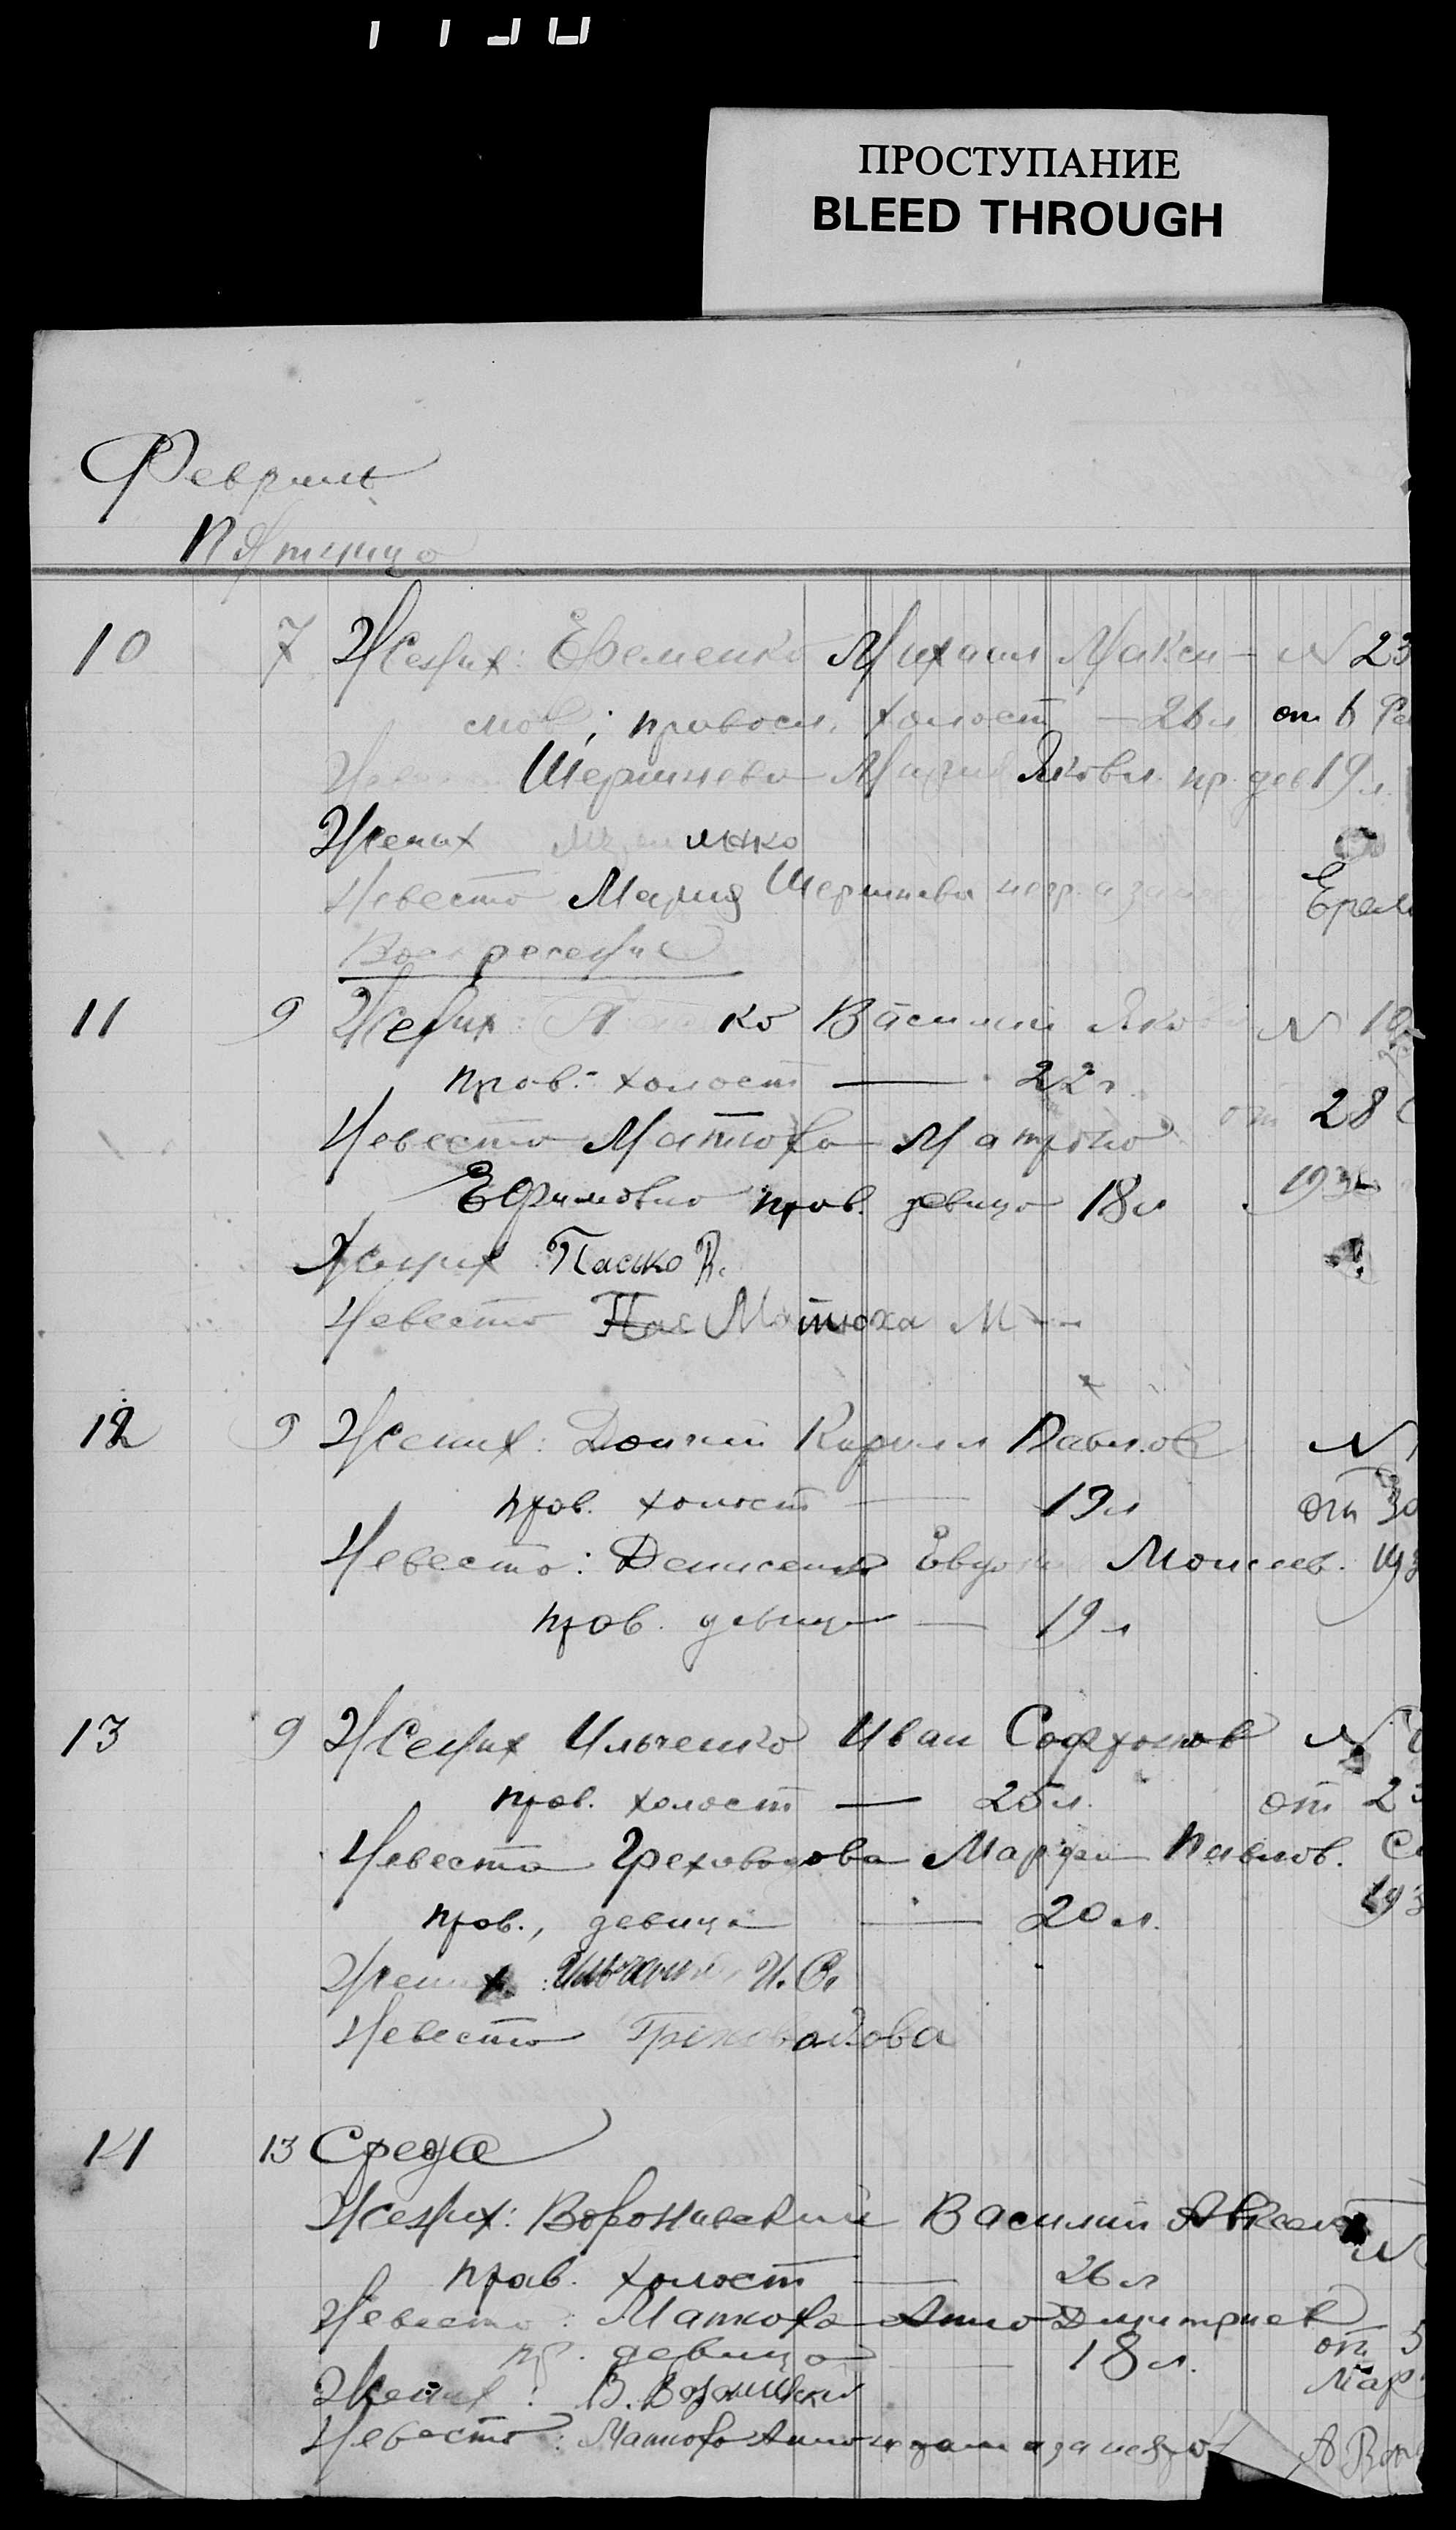 ПРОСТУПАНИЕ
BLEED THROUGH
Февраль
Пятница
10 7 Жених: Ефеменко Михаил Макси- N 23
мов; правосл. холост — 26 л от 6
Шершнева Мария Яковл. пр. дев 19 л.
Жених
Невеста Мария Шершнева негр. а за нее Ерем
Воскресение
11 9 Жених: Василий Яков N
прав. холост — 22 г.
Невеста Матюха Матрона от 28
Ефимовна прав. девица 18 л 193
Жених Пасько В.
Невеста Пас Матюха М
12 9 Жених: Долгий Кирилл Павлов N
прав. холост — 19 л от 30
Невеста: Денисенко Евдок Моисеев. 193
прав. девица — 19 л
13 9 Жених Ильченко Иван Софронов N
прав. холост — 25 л. от 2
Невеста Греховодова Марфа Павлов.
прав., девица — 20 л. 193
Жених: Ильченко И.С.
Невеста Греховодова
14 13 Среда
Жених: Воронивский Василий Авксен N
прав. холост — 26 л
Невеста: Матюха Анна Дмитриев
пр. девица — 18 л. от 5
Жених: В. Мар
Невеста: Матюха Анна а за негр